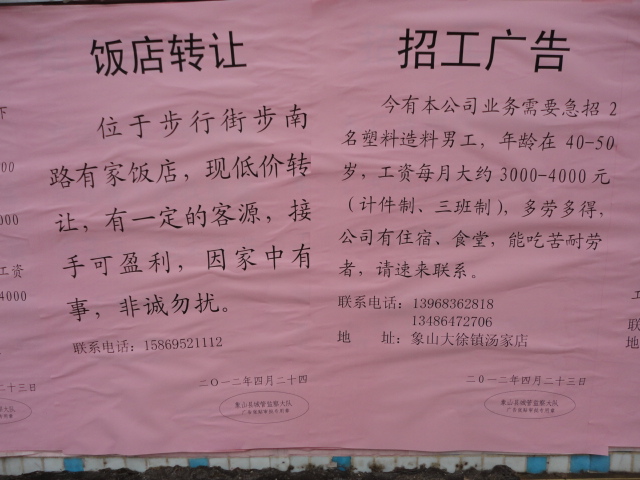 饭店转让
位于步行街步南
路有家饭店，现低价转
让，有一定的客源，接
手可盈利，因家中有
事，非诚勿扰。
联系电话：15869521112
二〇一二年四月二十四
象山县城管监察大队
招工广告
今有本公司业务需要急招2
名塑料造料男工，年龄在40-50
岁，工资每月大约3000-4000元
（计件制、三班制），多劳多得，
公司有住宿、食堂，能吃苦耐劳
者，请速来联系。
联系电话：13968362818
13486472706
地 址：象山大徐镇汤家店
二〇一二年四月二十三日
象山县城管监察大队
下
000
000
工资
4000
二十三日
工
联系